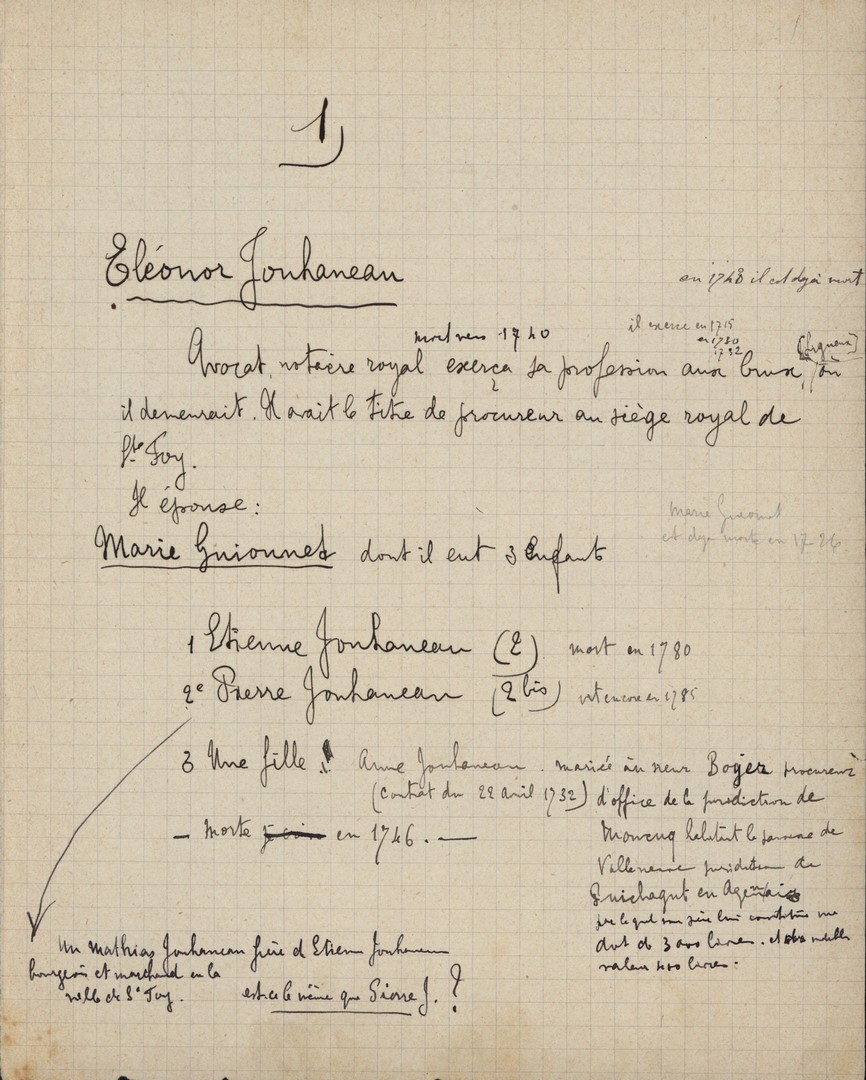 1
Eléonor Jouhaneau
en 1748 il est déjà mort
mort vers 1740
il exerce en 1715
en 1730
1732
[Ligueux]
Avocat, notaire royal exerça sa profession aux bruix, où
il demeurait. Il avait le titre de procureur au siège royal de
Ste Foy.
Il épouse :
Marie Guionnet
est déjà morte en 1726
Marie Guionnet dont il eut 3 Enfants
1 Etienne Jouhaneau (2) mort en 1780
2e Pierre Jouhaneau (2 bis) vit encore en 1785
3 Une fille Anne Jouhaneau. mariée au sieur Boyer procureur
(contrat du 22 avril 1732) d'office de la juridiction de
— Morte en 1746. —
habitant la paroisse de
Villeneuve juridiction de
en Agenais
par lequel son père lui constitue une
dot de 3000 livres. et meuble
valeur 400 livres.
Un Mathias Jouhaneau frère d Etienne Jouhaneau
bourgeois et marchand en la
ville de Ste Foy.
est-ce le même que Pierre J. ?